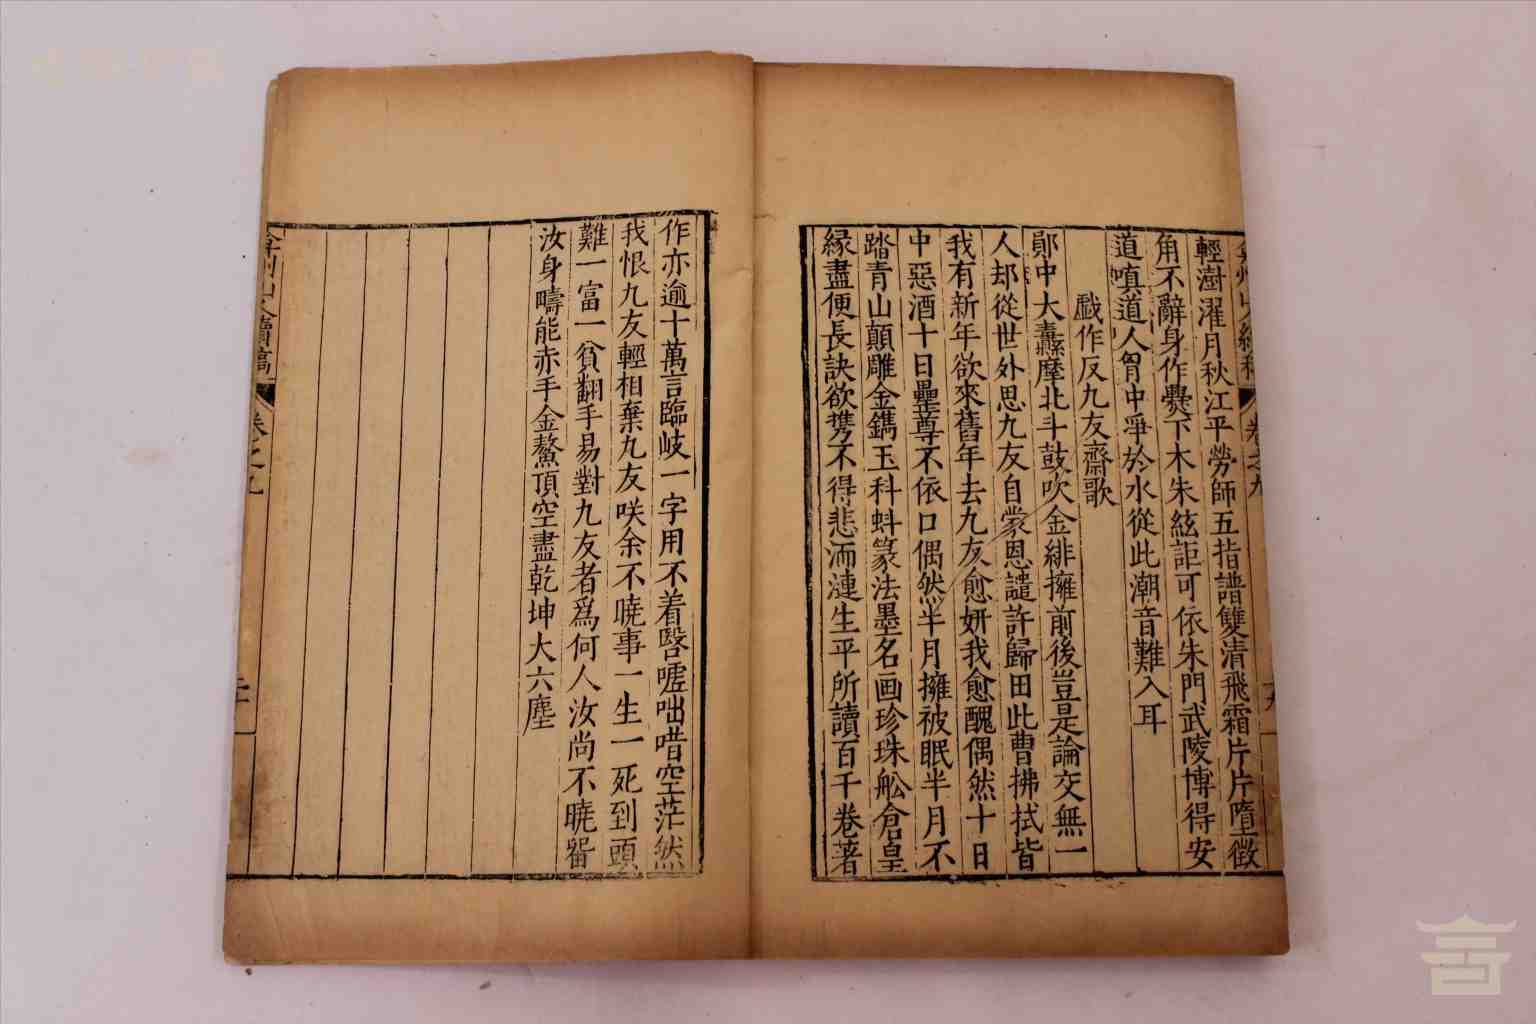 弇州山人續稿 卷之九
輕澍濯月秋江平勞師五指譜雙清飛霜片片墮徵
角不辭身作爨下木朱絃詎可依朱門武陵博得安
道嗔道人胷中爭於水從此潮音難入耳
戲作反九友齋歌
鄖中大纛摩北斗鼓吹金緋擁前後豈是論交無一
人却從世外思九友自蒙恩譴許歸田此曹拂拭皆
我有新年欲來舊年去九友愈妍我愈醜偶然十日
中惡酒十日罍尊不依口偶然半月擁被眠半月不
踏青山顛雕金鐫玉科蚪篆法墨名画珍珠舩倉皇
緣盡便長訣欲携不得悲洏漣生平所讀百千卷著
作亦逾十萬言臨岐一字用不着毉嘘咄唶空茫然
我恨九友輕相棄九友咲余不曉事一生一死到頭
難一富一貧翻手易對九友者爲何人汝尚不曉畱
汝身疇能赤手金鰲頂空盡乾坤大六塵
弇州山人續稿 卷之九